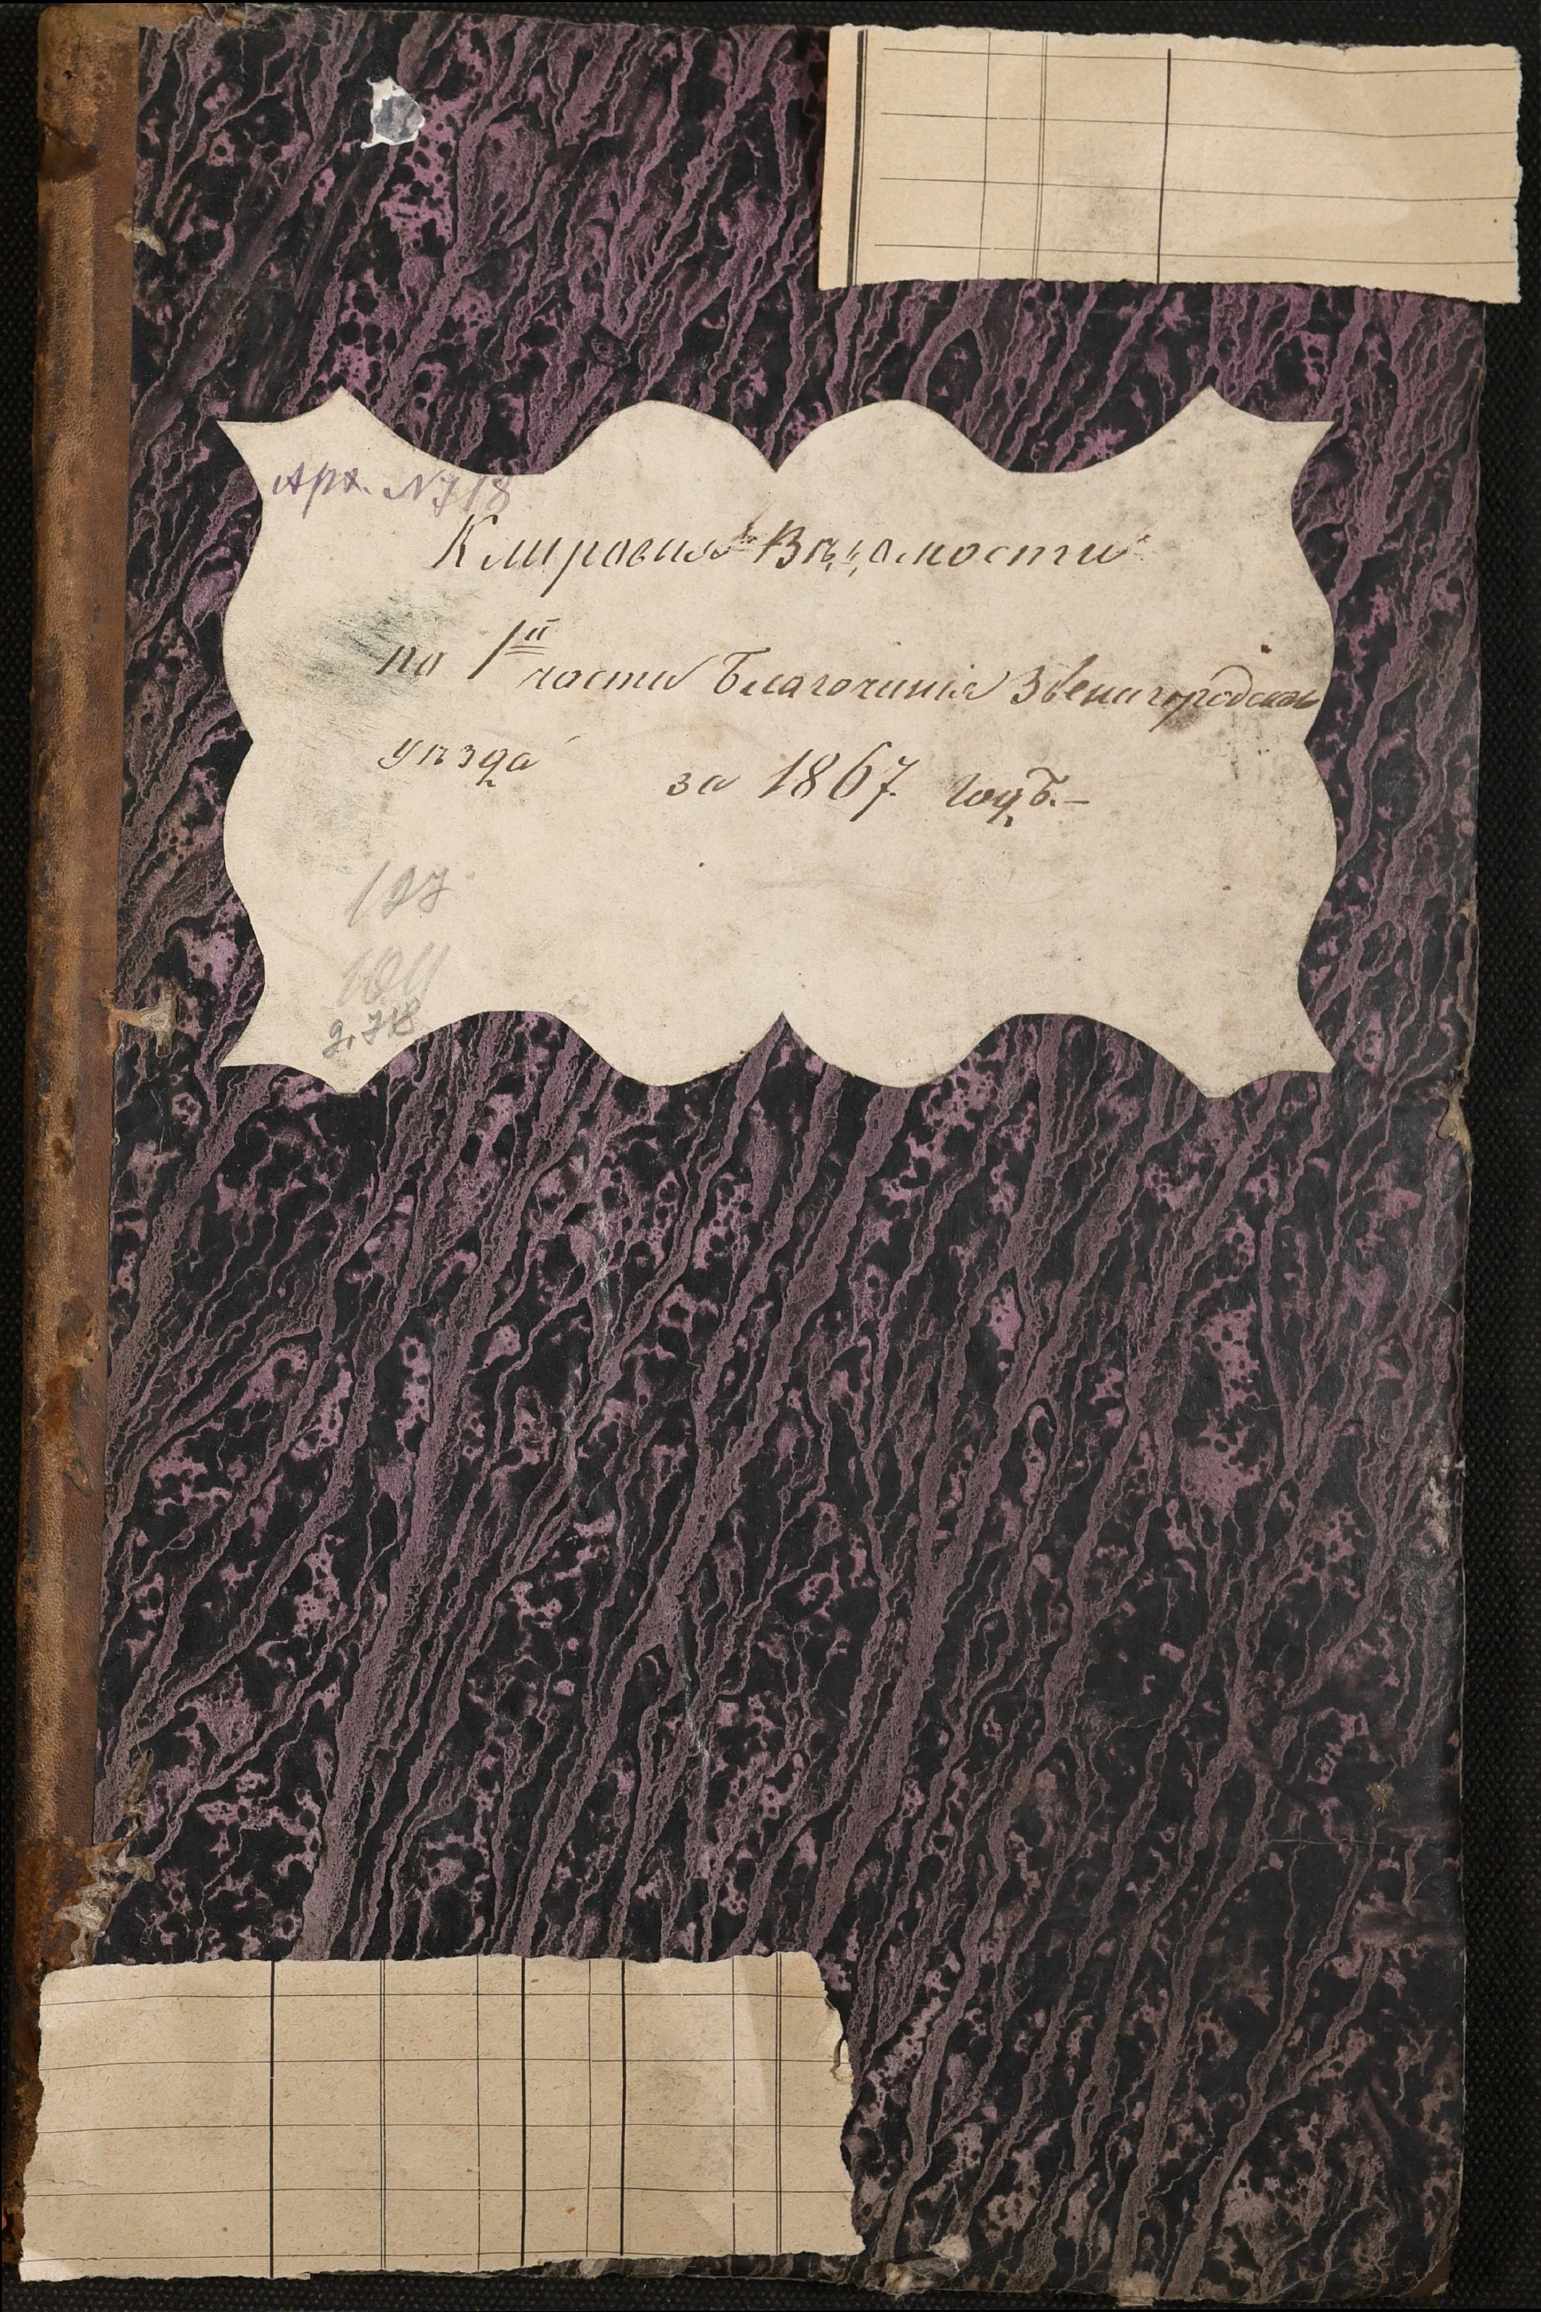 Арх. №718
Клировыя Вѣдомости
по 1й части Благочинія Звенигородскаго
уѣзда за 1867 годъ.—
127
104
д. 718